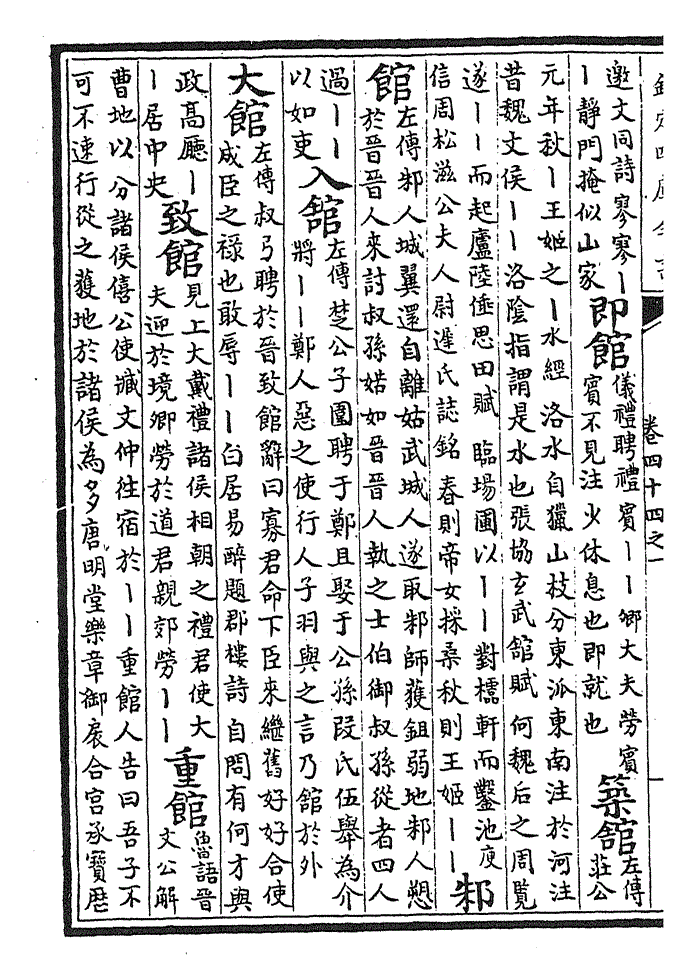 卷四十四之一
邀文同詩寥寥丨
丨靜門掩似山家
即館
儀禮聘禮賓丨丨卿大夫勞賓
賓不見注少休息也即就也
築館
左傳
莊公
元年秋丨王姬之丨水經洛水自獵山枝分東派東南注於河注
昔魏文侯丨丨洛陰指謂是水也張協玄武館賦何魏后之周覧
遂丨丨而起廬陸倕思田賦臨場圃以丨丨對櫺軒而鑿池庾
信周松滋公夫人尉遲氏誌銘春則帝女採桑秋則王姬丨丨
邾
館
左傳邾人城翼還自離姑武城人遂取邾師獲鉏弱地邾人愬
於晉晉人來討叔孫婼如晉晉人執之士伯御叔孫從者四人
過丨丨
以如吏
入舘
左傳楚公子圍聘于鄭且娶于公孫段氏伍舉為介
將丨丨鄭人惡之使行人子羽與之言乃舘於外
大館
左傳叔弓聘於晉致館辭曰寡君命下臣來繼舊好好合使
成臣之禄也敢辱丨丨白居易醉題郡樓詩自問有何才與
政高廳丨
丨居中央
致館
見上大戴禮諸侯相朝之禮君使大
夫迎於境卿勞於道君親郊勞丨丨
重館
魯語晉
文公解
曹地以分諸侯僖公使臧文仲往宿於丨丨重館人告曰吾子不
可不速行從之獲地於諸侯為多唐明堂樂章御扆合宮承寶厯